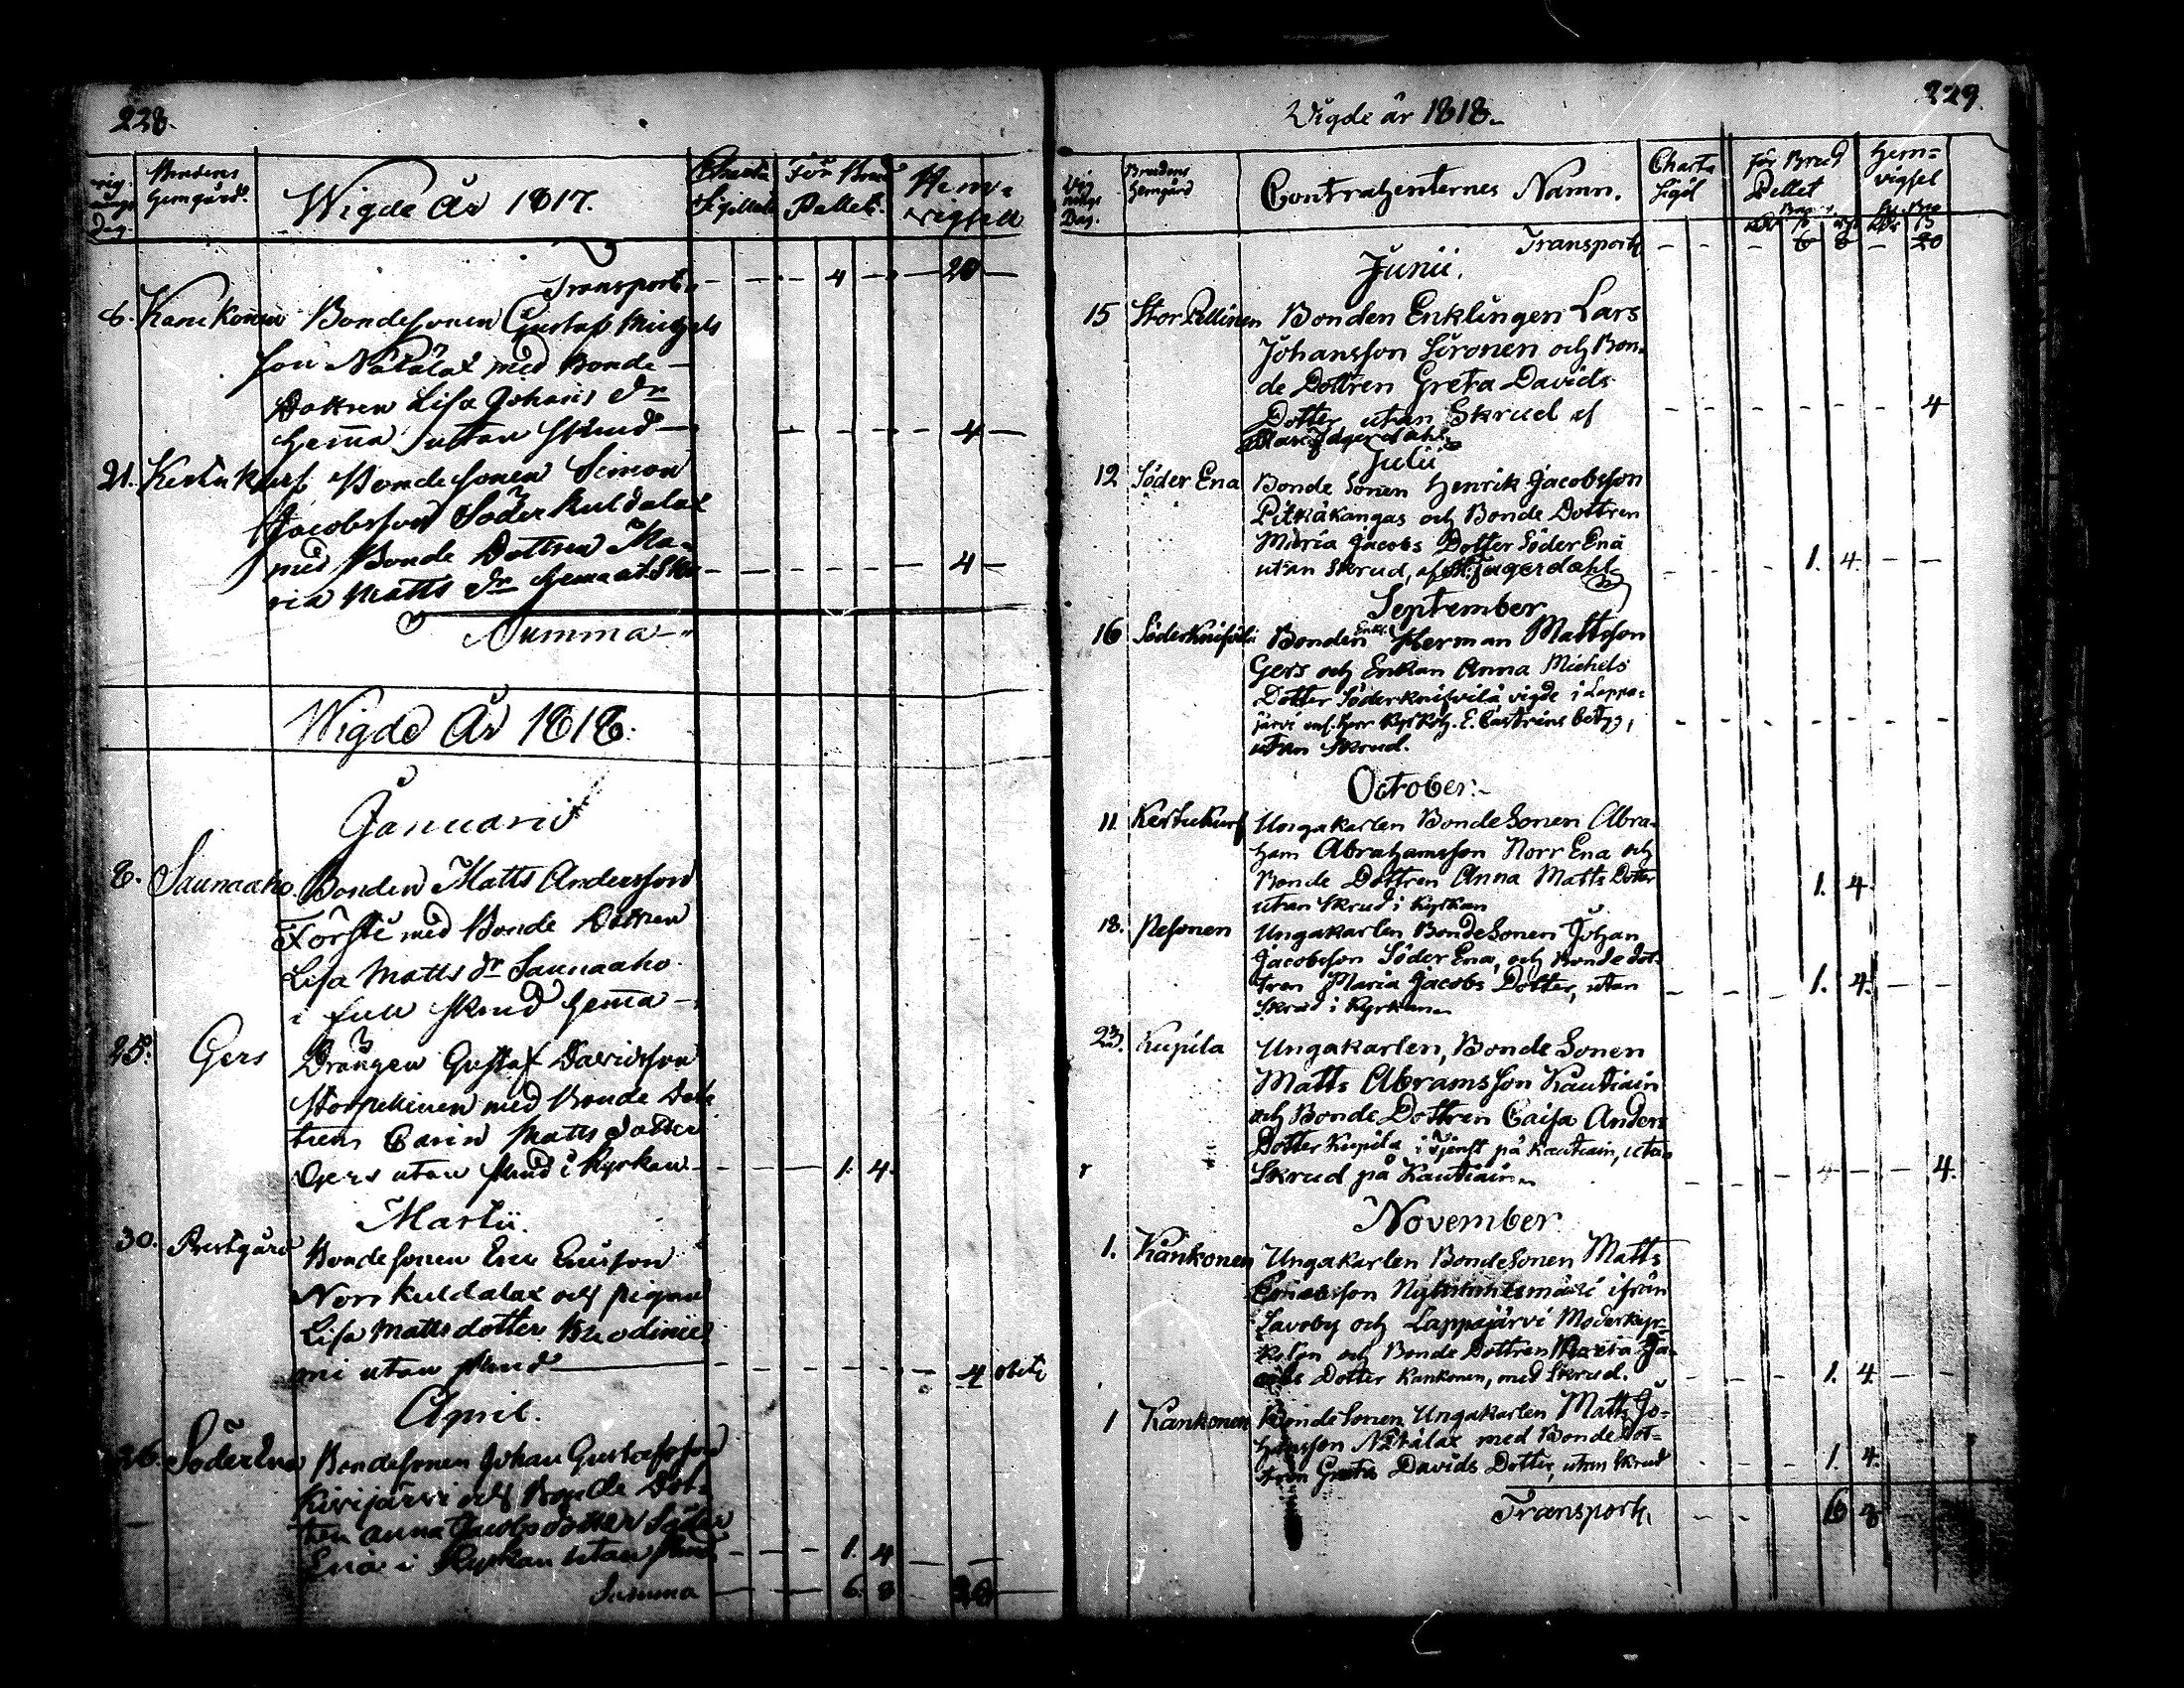 228.
Wigde År 1817.
Charta Sigillata
För Brud Pellet.
Hem-vigsell
Brudens Hemgård.
Dag.
Transport 4 20
6. Kankonen Bondesonen Gustaf Michels
son Nätälax med Bonde-
Dottren Lisa Johans dr
hemma utan skrud 4
21. Kertukurf Bondesonen Simon
Jacobsson Söder kuldalax
med Bonde Dottren Ma-
ria Matts dr hema ut. Skr 4
Summa
Wigde År 1818.
Januarii
8. Saunaaho. Bonden Matts Andersson
Försti med Bonde Dottren
Lisa Matts dr Saunaaho
i full skrud hemma
25. Gers Drängen Gustaf Davidsson
Storpellinen med Bonde Dot
tren Carin Matts dotter
Gers utan skrud i Kyrkan 1. 4.
Martii.
30. Prestgård Bondesonen Eric Ericsson
Norrkuldalax och pigan
Lisa Mattsdotter
mi utan skrud 4
April.
26. Söder Ena Bondesonen Johan Gustafsson
Kivijärvi och Bonde Dot-
tren Anna Jacobsdotter Söder
Ena i Kyrkan utan skrud 1. 4
Summa 6. 8 20
229.
Vigde år 1818.
Vig nings Dag.
Brudens Hemgård
Contrahenternes Namn.
Charta Sigil
för Brud Pellet
Hem= vigsel
Transport 6 8 20
Junii.
15 Stor Pellinen Bonden Enklingen Lars
Johansson Sironen och Bon-
de Dottren Greta Davids
Dotter utan Skrud af
Jägerdahl 4
Julii
12 Söder Ena Bonde Sonen Henrik Jacobsson
Pitkäkangas och Bonde Dottren
Maria Jacobs Dotter Söder Ena
utan Skrud, af Jägerdahl 1. 4.
September
16 Söderknifvilä Bonden Enkl. Herman Mattsson
Gers och Enkan Anna Michels
Dotter Söderknifvilä vigde i Lappa=
järvi enl. Herr E. Castréns betyg,
utan Skrud.
October.
11. Kertukurf Ungakarlen BondeSonen Abra-
ham Abrahamsson Norr Ena och
Bonde Dottren Anna Matts Dotter
utan Skrud i Kyrkan 1. 4.
18. Pesonen Ungakarlen BondeSonen Johan
Jacobsson Söder Ena, och Bonde dot-
tren Maria Jacobs Dotter, utan
Skrud i Kyrkan 1. 4.
23. Kupila Ungakarlen, Bonde Sonen
Matts Abramsson Kautiain
och Bonde Dottren Caisa Anders
Dotter Kupila i Tjenst på Kautiain, utan
Skrud på Kautiain 4.
November
1. Kankonen Ungakarlen BondeSonen Matts
ifrån
Savoby och Lappajärvi Moderkyr-
och Bonde Dottren Maria Ja-
cobs Dotter Kankonen, med Skrud. 1. 4.
1 Kankonen Bonde Sonen Ungakarlen Matts Jo-
hansson Nätälax med Bonde Dot-
tren Greta Davids Dotter, utan Skrud 1. 4.
Transport 6 8